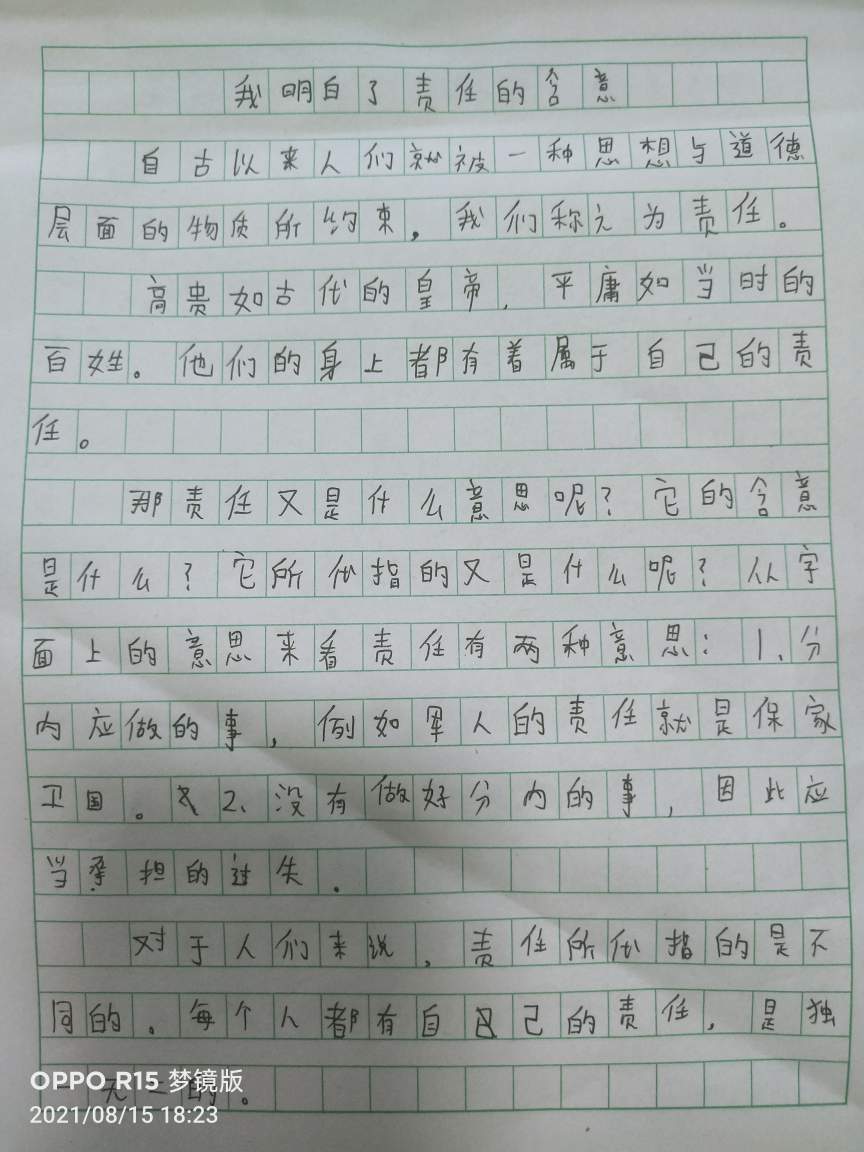 我明白了责任的含意
自古以来人们就被一种思想与道德
层面的物质所约束，我们称之为责任。
高贵如古代的皇帝，平庸如当时的
百姓。他们的身上都有着属于自己的责
任。
那责任又是什么意思呢？它的含意
是什么？它所代指的又是什么呢？从字
面上的意思来看责任有两种意思：1、分
内应做的事，例如军人的责任就是保家
卫国。2、没有做好分内的事，因此应
当承担的过失．
对于人们来说，责任所代指的是不
同的．每个人都有自己的责任，是独
一无二的。
OPPO R15 梦镜版
2021/08/15 18:23